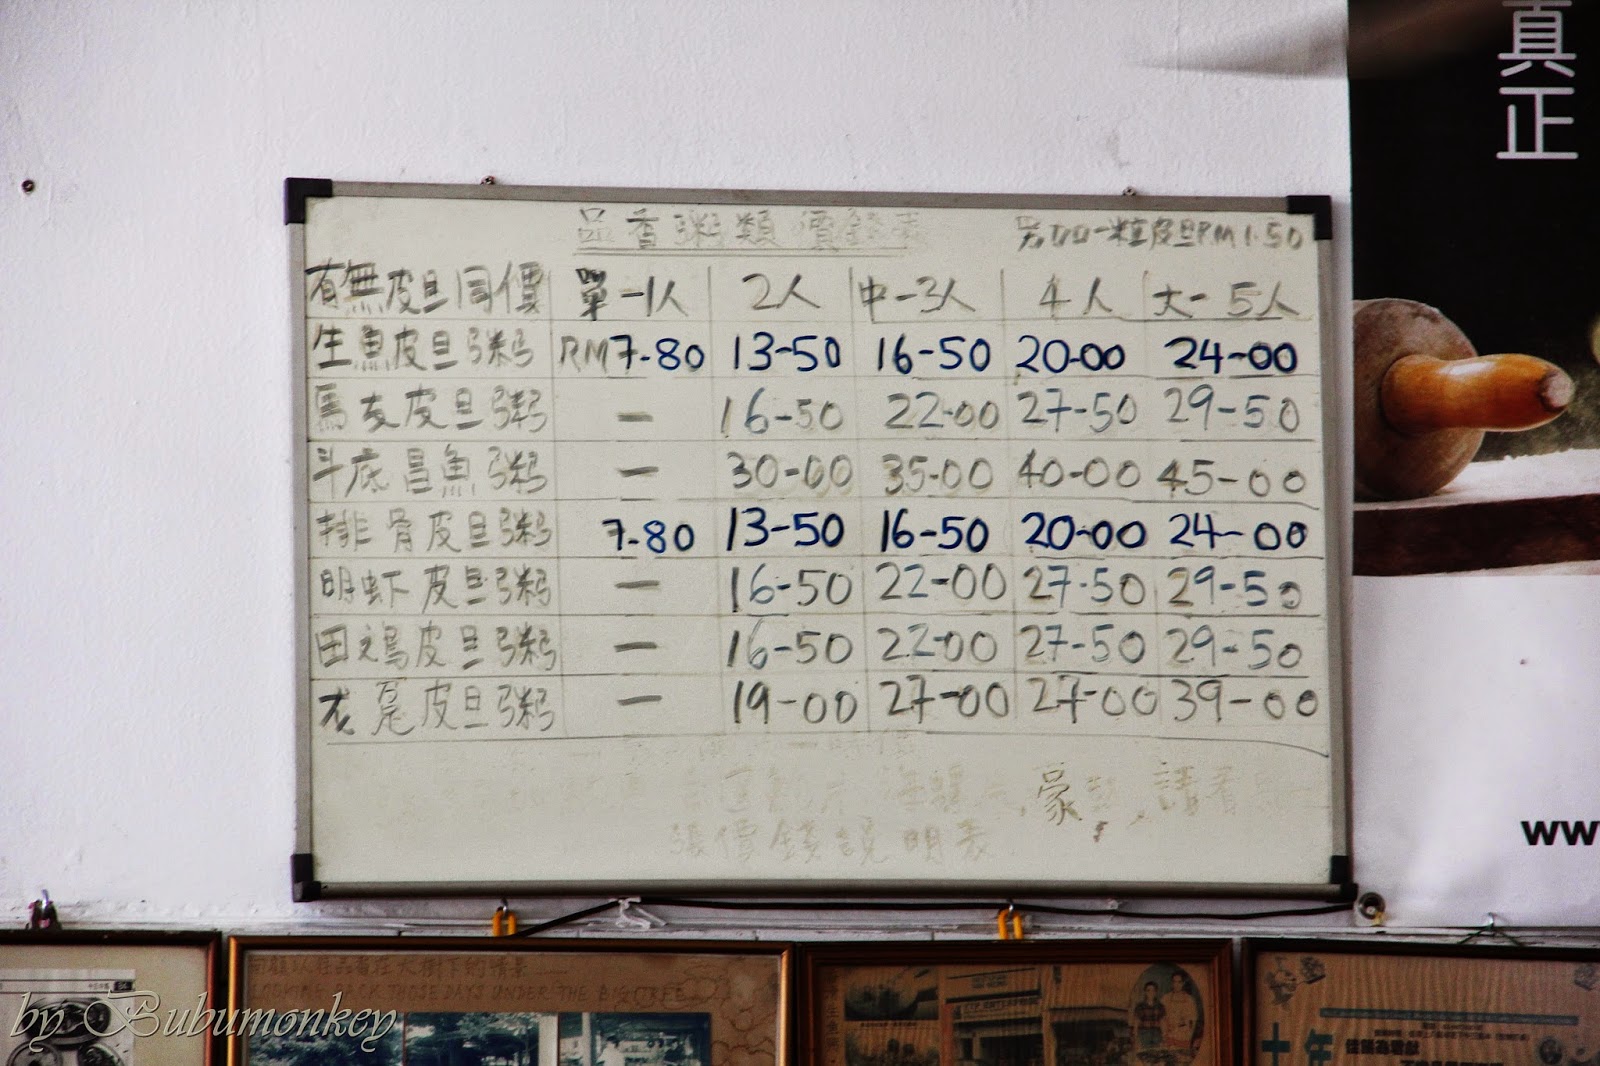 品香粥類價錢表
另加一粒皮旦RM1.50
有無皮旦同價 單-1人 2人 中-3人 4人 大-5人
生魚皮旦粥 RM7-80 13-50 16-50 20-00 24-00
馬友皮旦粥 — 16-50 22-00 27-50 29-50
斗底昌魚粥 — 30-00 35-00 40-00 45-00
排骨皮旦粥 7-80 13-50 16-50 20-00 24-00
明虾皮旦粥 — 16-50 22-00 27-50 29-50
田鳮皮旦粥 — 16-50 22-00 27-50 29-50
龙 皮旦粥 — 19-00 27-00 27-00 39-00
豪 請看
張價錢說明表
真正
ww
LOOKING BACK THOSE DAYS UNDER THE BIG TREE
十年
by Bubumonkey